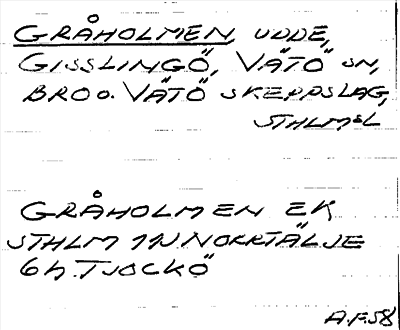 GRÅHOLMEN, UDDE,
GISSLINGÖ, VÄTÖ SN,
BRO O. VÄTÖ SKEPPSLAG,
STHLMS L
GRÅHOLMEN EK
STHLM 1 N NORRTÄLJE
6 h. TJOCKÖ
A.F.58